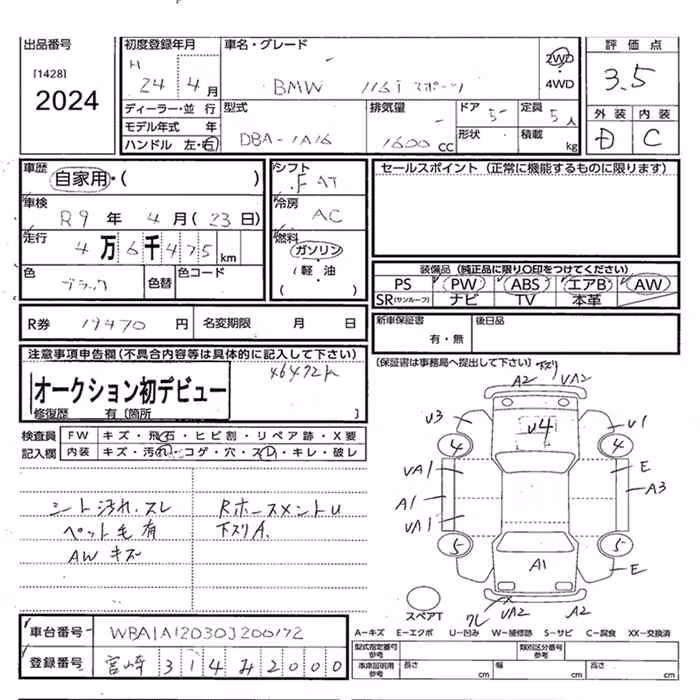 出品番号
[1428]
2024
初度登録年月
H 24年 4月
車名・グレード
BMW 116i スポーツ
2WD
・
4WD
評価点
3.5
外装 内装
D C
ディーラー・並行
モデル年式 年
ハンドル 左・右
型式
DBA-1A16
排気量
1600 CC
ドア 5
形状
定員 5人
積載 kg
車歴
自家用・( )
車検
R9年 4月(23日)
走行
4万6千475km
色
ブラック
色替
色コード
シフト
F AT
冷房
AC
燃料
ガソリン
(軽・油
( )
セールスポイント (正常に機能するものに限ります)
装備品 (純正品に限り○印をつけてください)
PS PW ABS エアB AW
SR(サンルーフ) ナビ TV 本革
R券 19470円 名変期限 月 日
新車保証書
有・無
後日品
(保証書は事務局へ提出して下さい)
注意事項申告欄(不具合内容等は具体的に記入して下さい)
46472k
オークション初デビュー
修復歴 有〔箇所 〕
検査員 FW キズ・飛石・ヒビ割・リペア跡・X要
記入欄 内装 キズ・汚れ・コゲ・穴・スレ・キレ・破レ
シート汚れ.スレ
ペット毛有
AW キズ
RホースメントU
下スリA.
下スリ
A2 UA2
U3 U4 U1
4 4
UA1 E
A1 A3
UA1
5 5
A1 E
スペアT
ワレ UA2 A2
A-キズ E-エクボ U-凹み W-補修跡 S-サビ C-腐食 XX-交換済
車台番号 WBA1A12030J200172
登録番号 宮崎 314 み 2000
型式指定番号
参考
類別区分番号
参考
車庫証明用
参考
長さ cm 幅 cm 高さ cm